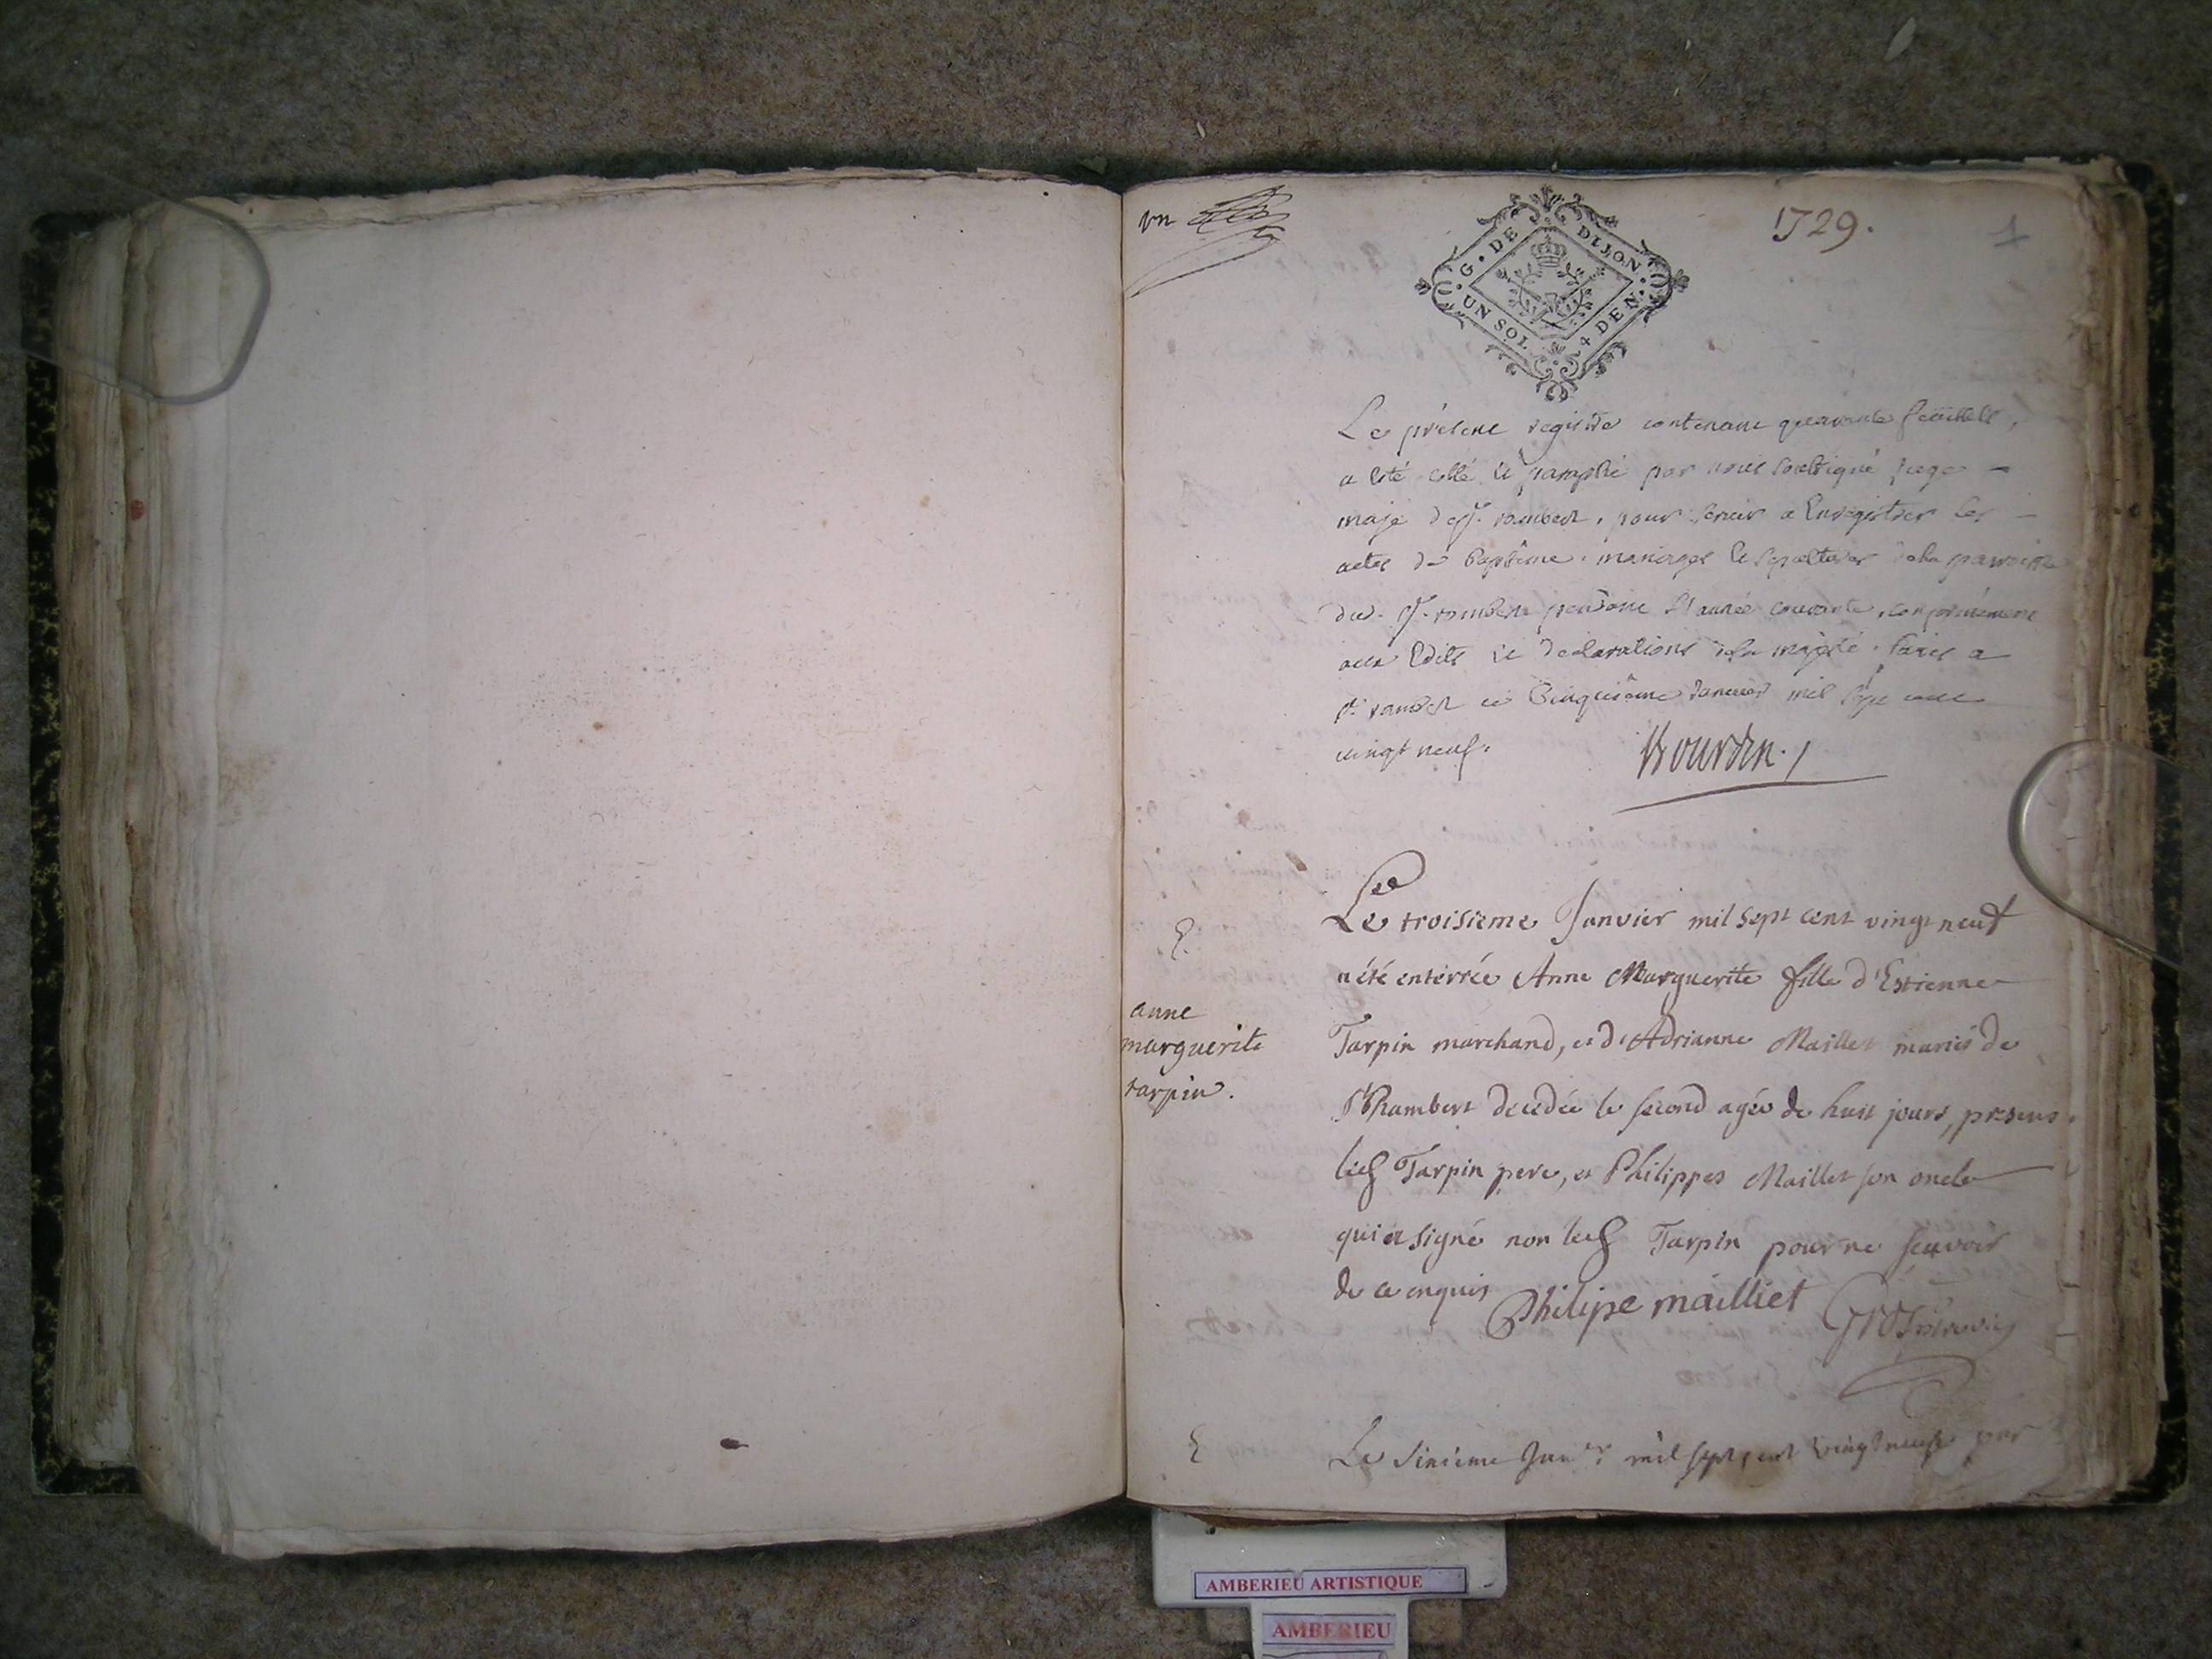 un
G. DE DIJON
UN SOL 4 DEN.
1729.
1
Le présent registre contenant quarante feuillets,
a esté cotté et paraphé par nous soussigné juge
maje de St. rambert, pour servir a Enregistrer les
actes de Baptême, mariages et sepultures de la paroisse
du. St. rambert pendant l'année courante, conformément
aux Edits et declarations de sa majesté. Faict a
St. rambert ce Cinquième Janvier mil sept cent
vingt neuf.
Bourdin
E.
anne
marguerite
tarpin.
Le troisieme Janvier mil sept cent vingt neuf
a été enterrée Anne Marguerite fille d'Estienne
Tarpin marchand, et d'Adrianne Maillet mariés de
St Rambert decedée le second agée de huit jours, presens
led Tarpin pere, et Philippes Maillet son oncle
qui a signé non led Tarpin pour ne sçavoir
de ce enquis
Philipe mailliet
E
Le sixieme Janer mil sept cent vingt neuf par
AMBERIEU ARTISTIQUE
AMBERIEU